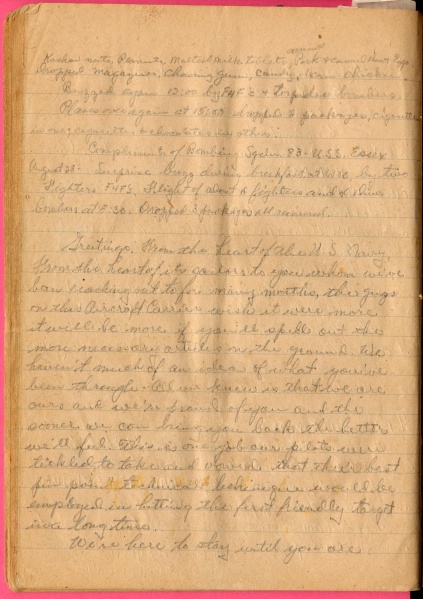 nuts, Peanuts, Malted Milk tablets, Pork & canned Ham & Eggs
Dropped magazines, chewing gum, candy, chicken
Buzzed again 12:00 by F4F's & torpedo bombers.
Planes over again at 15:00 dropped 3 packages, cigarettes
in one, cigarettes & chocolates in others:
Compliments of Bombing Sqdn. 83 - U.S.S. Essex
August 28: Surprise buzz during breakfast by two
fighters F4F's, flight of about fighters and of dive
bombers at 8:30. Dropped 3 packages all around.
Greetings, From the heart of the U.S. Navy,
From the heart of its sailors to you whom we've
been reaching out to for many months, the guys
on this Aircraft Carrier wish it were more
it will be more if you'll spell out the
more necessary articles on the ground. We
haven't much of an idea of what you've
been through. All we know is that you are
ours and we're proud of you and the
sooner we can bring you back the better
we'll feel. This is one job our pilots were
tickled to take and vowed that their best
fin point technical technique would be
employed in hitting the first friendly target
in a long time.
We're here to stay until you are